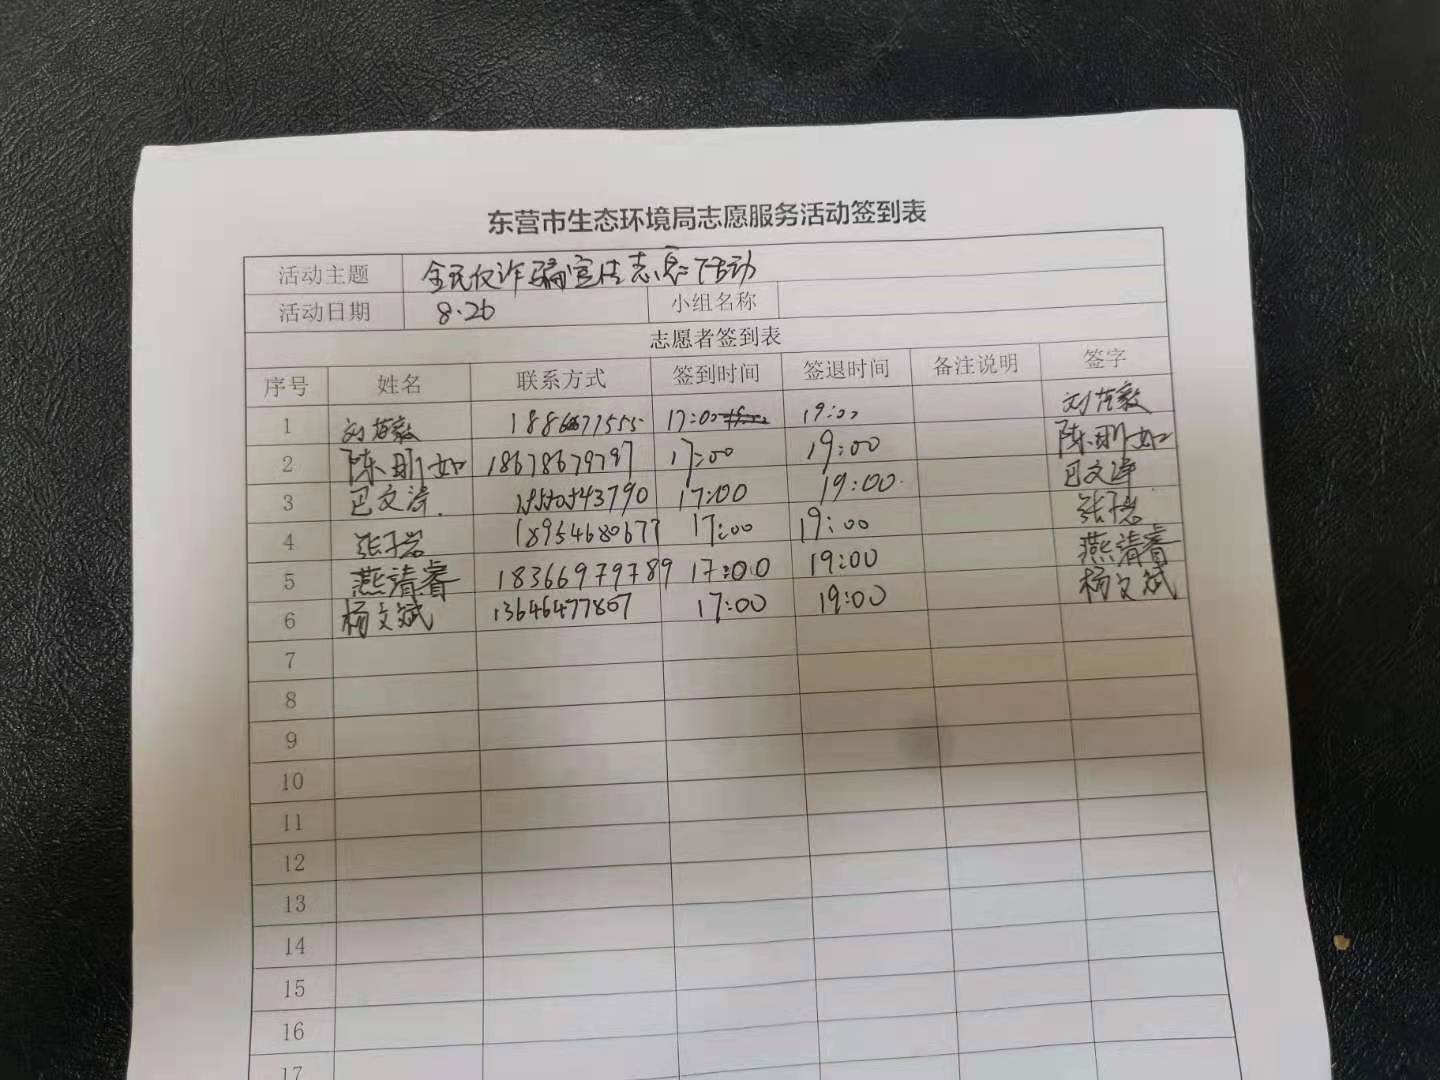 东营市生态环境局志愿服务活动签到表
活动主题 全民反诈骗宣传志愿活动
活动日期 8.26 小组名称
志愿者签到表
序号 姓名 联系方式 签到时间 签退时间 备注说明 签字
1 17:00 19:00
2 陈刚如 18678679797 17:00 19:00 陈刚如
3 巴文涛 17:00 19:00 巴文涛
4 18954680677 17:00 19:00
5 燕清睿 18366979789 17:00 19:00 燕清睿
6 杨文斌 13646477807 17:00 19:00 杨文斌
7
8
9
10
11
12
13
14
15
16
17